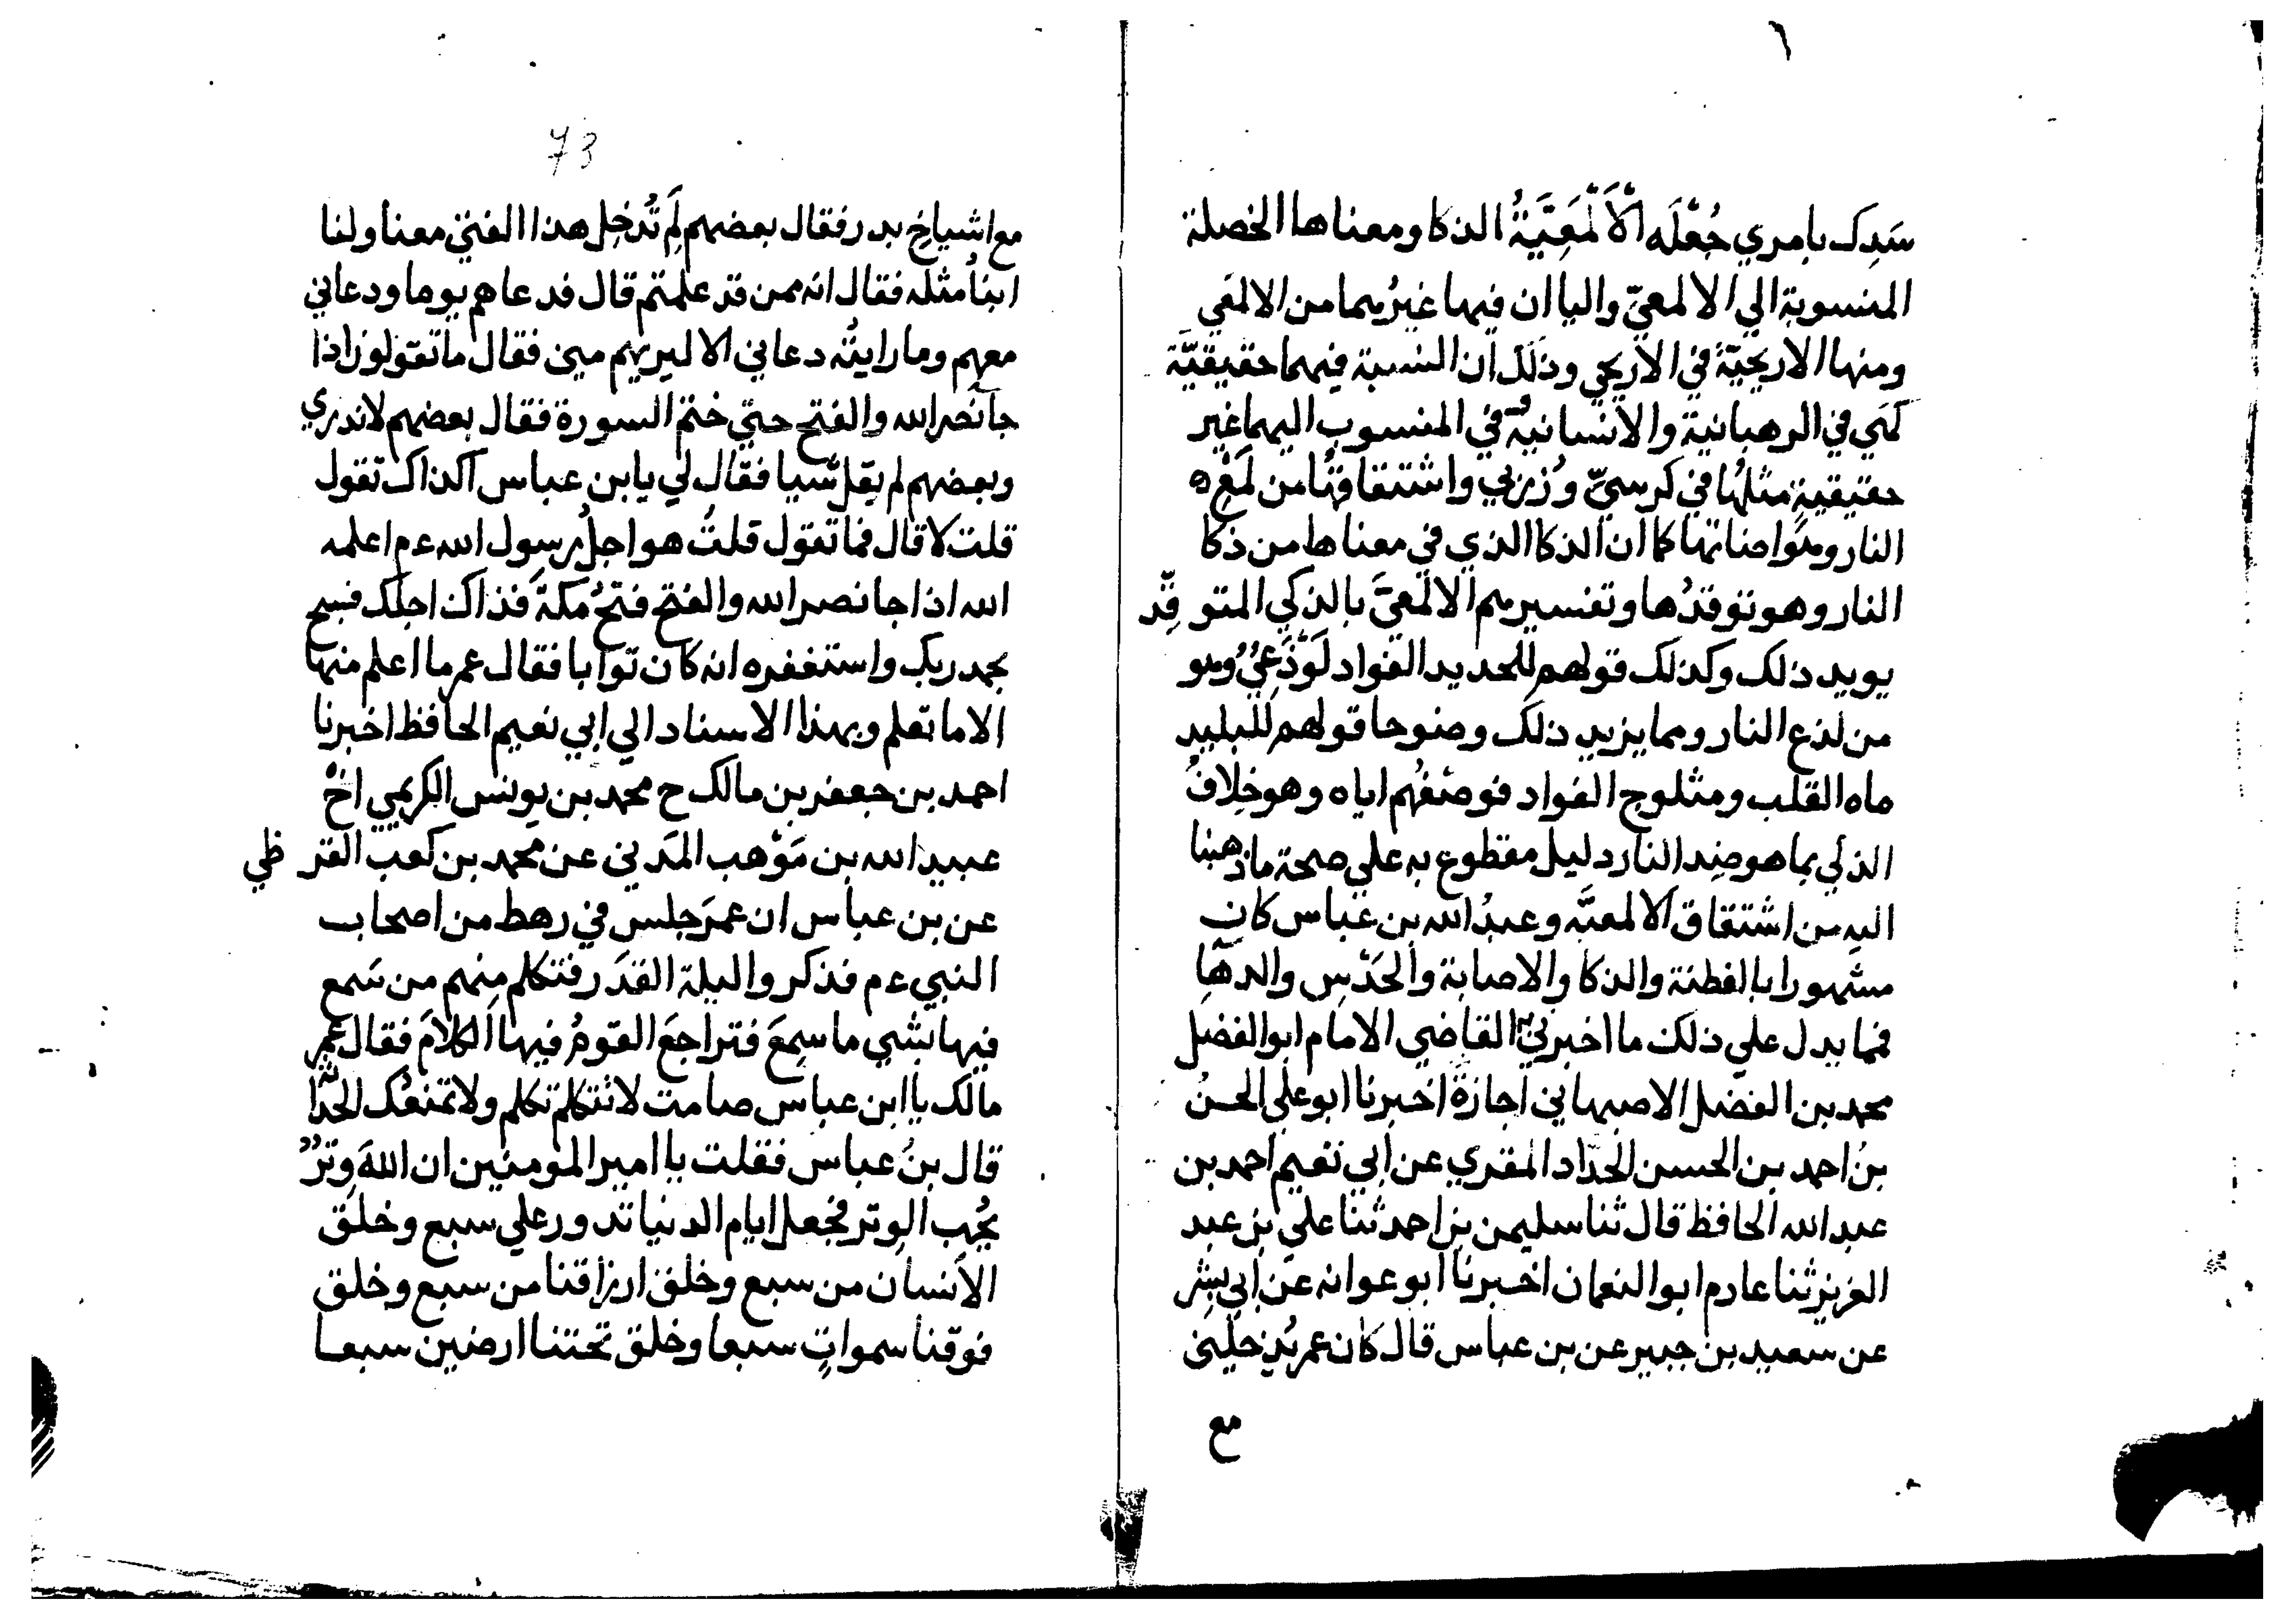 سَدِكَ بامري جُعْلَه الْأَلْمَعِيَّةُ الذكا ومعناها الخصلة
المنسوبة الي الالمعيّ واليا ان فيها غيرُهما من الالمعي
ومنها الاريحيّة في الاريحي وذلك ان النسبة فيهما حقيقيَّة
كهي في الرهبانية والانسانية وفي المنسوب اليهما غير
حقيقيةٍ مثلُها في كرسيّ وزربي واشتقاقها من لمع
النار وهو اضاتها كما ان الذكا الذي في معناها من ذكا
النار وهو توقدُها وتفسيرهم الالمعيَّ بالذكي المتوقِّد
يويد ذلك وكذلك قولهم للحديد الفواد لَوْذَعِيٌّ وهو
من لذع النار ومما يزيد ذلك وضوحا قولهم للبليد
ماه القلب ومثلوج الفواد فوصْفُهم اياه وهو خِلافُ
الذكي بما هو ضد النار دليل مقطوع به علي صحة ما ذهبنا
اليه من اشتقاق الالمعيَّه وعبدُ الله بن عباس كان
مشهورا بالفطنة والذكا والاصابة والحَدْسِ والدهآ
فمما يدل علي ذلك ما اخبرنيه القاضي الامام ابو الفضل
محمد بن الفضل الاصبهاني اجازةً اخبرنا ابو علي الحسنُ
بنُ احمد بن الحسن الحدّاد المقري عن ابي نعيم احمد بن
عبد الله الحافظ قال ثنا سليمن بن احمد ثنا علي بن عبد
العزيز ثنا عارم ابو النعمان اخبرنا ابو عوانه عن ابي بِشر
عن سعيد بن جبير عن بن عباس قال كان عمر يُدخلني
مع
73
مع اشياخ بدر فقال بعضهم لِمَ تُدخِل هذا الفتي معنا ولنا
ابنآ مثله فقال انه ممن قد علمتم قال فدعاهم يوما ودعاني
معهم وما رايتُه دعاني الا ليريهم مني فقال ما تقولون اذا
جآ نصر الله والفتح حتي ختم السورة فقال بعضهم لا ندري
وبعضهم لم يقل شيا فقال لي يا بن عباس اكذاك تقول
قلت لا قال فما تقول قلتُ هو اجلُ رسول الله عم اعلمه
الله اذا جا نصر الله والفتح فتحُ مكةَ فذاك اجلك فسبح
بحمد ربك واستغفره انه كان توابا فقال عمر ما اعلم منها
الا ما تعلم وبهذا الاسناد الي ابي نعيم الحافظ اخبرنا
احمد بن جعفر بن مالك ح محمد بن يونس الكريمي اخ
عبيد الله بن مَوْهب المَدني عن محمد بن كعب القرظي
عن بن عباس ان عمرَ جلس في رهط من اصحاب
النبي عم فذكروا ليلة القدَر فتكلم منهم من سَمع
فيها بشي ما سمعَ فتراجعَ القومُ فيها الكلامَ فقال عمر
مالك يا ابن عباس صامت لا تتكلم تكلم ولا تمنعُك الحداثة
قال بنُ عباس فقلت يا امير المومنين ان اللهَ وِترٌ
يُحِب الوتر فجعل ايام الدنيا تدور علي سبع وخلق
الانسان من سبع وخلق ارزاقنا من سبع وخلق
فوقنا سمواتٍ سبعا وخلق تحتنا ارضين سبعا